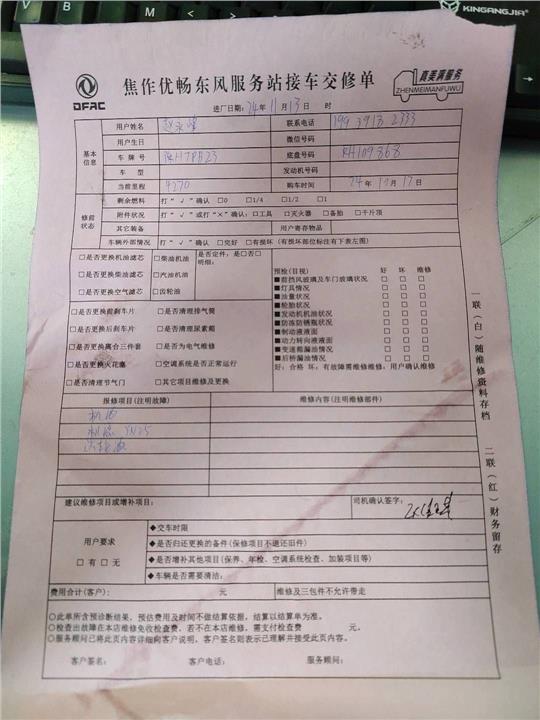 V B N M
KINGANGJIA
DFAC
焦作优畅东风服务站接车交修单
真美满服务
ZHENMEIMANFUWU
进厂日期：24年11月13日 时
基本信息
用户姓名
联系电话 199 3913 2333
用户生日 微信号码
车牌号 底盘号码 RH109868
车型 发动机号码
当前里程 4270 购车时间 24年 月17日
修前状态
剩余燃料 打“√”确认 □0 □1/4 □1/2 □1
附件状况 打“√”或打“×”确认：□工具 □灭火器 □备胎 □千斤顶
其它装备 用户寄存物品
车辆外部情况 打“√”确认 □完好 □有损坏（有损坏部位标注有下表左图）
□是否更换机油滤芯 □柴油机油 是否定件：是□否□
明细：
□是否更换柴油滤芯 □汽油机油
□是否更换空气滤芯 □齿轮油
□是否更换前刹车片 □是否清理排气筒
□是否更换后刹车片 □是否清理尿素箱
□是否更换离合三件套 □是否为电气维修
□是否更换火花塞 □空调系统是否正常运行
□是否清理节气门 □其它项目维修及更换
预检（目视） 好 坏 维修
■前挡风玻璃及车门玻璃状况 □ □ □
■灯具情况 □ □ □
■油量状况 □ □ □
■轮胎状况 □ □ □
■发动机机油状况 □ □ □
■防冻防锈瓶状况 □ □ □
■制动液液面 □ □ □
■动力转向液液面 □ □ □
■变速箱漏油情况 □ □ □
■后桥漏油情况 □ □ □
好：合格 坏：有故障需维修维修：用户确认维修
报修项目（注明故障） 维修内容（注明维修部件）
机油
机滤
建议维修项目或增补项目： 司机确认签字：
用户要求
□有 □无
◆交车时限
◆是否归还更换的备件（保修项目不退还旧件）
◆是否增补其他项目（保养、年检、空调系统检查、加装项目等）
◆车辆是否需要清洁：
费用合计（客户）： 元 维修及三包件不允许带走
○此单所含预诊断结果，预估费用及时间不做结算依据，结算以结算单为准。
○检查出故障在本店维修免收检查费，若不在本店维修，需支付检查费 元。
○服务顾问已将此页内容详细向客户说明，客户签名则表示已理解并接受此页内容。
客户签名： 客户电话： 服务顾问：
一联（白）随维修资料存档
二联（红）财务留存